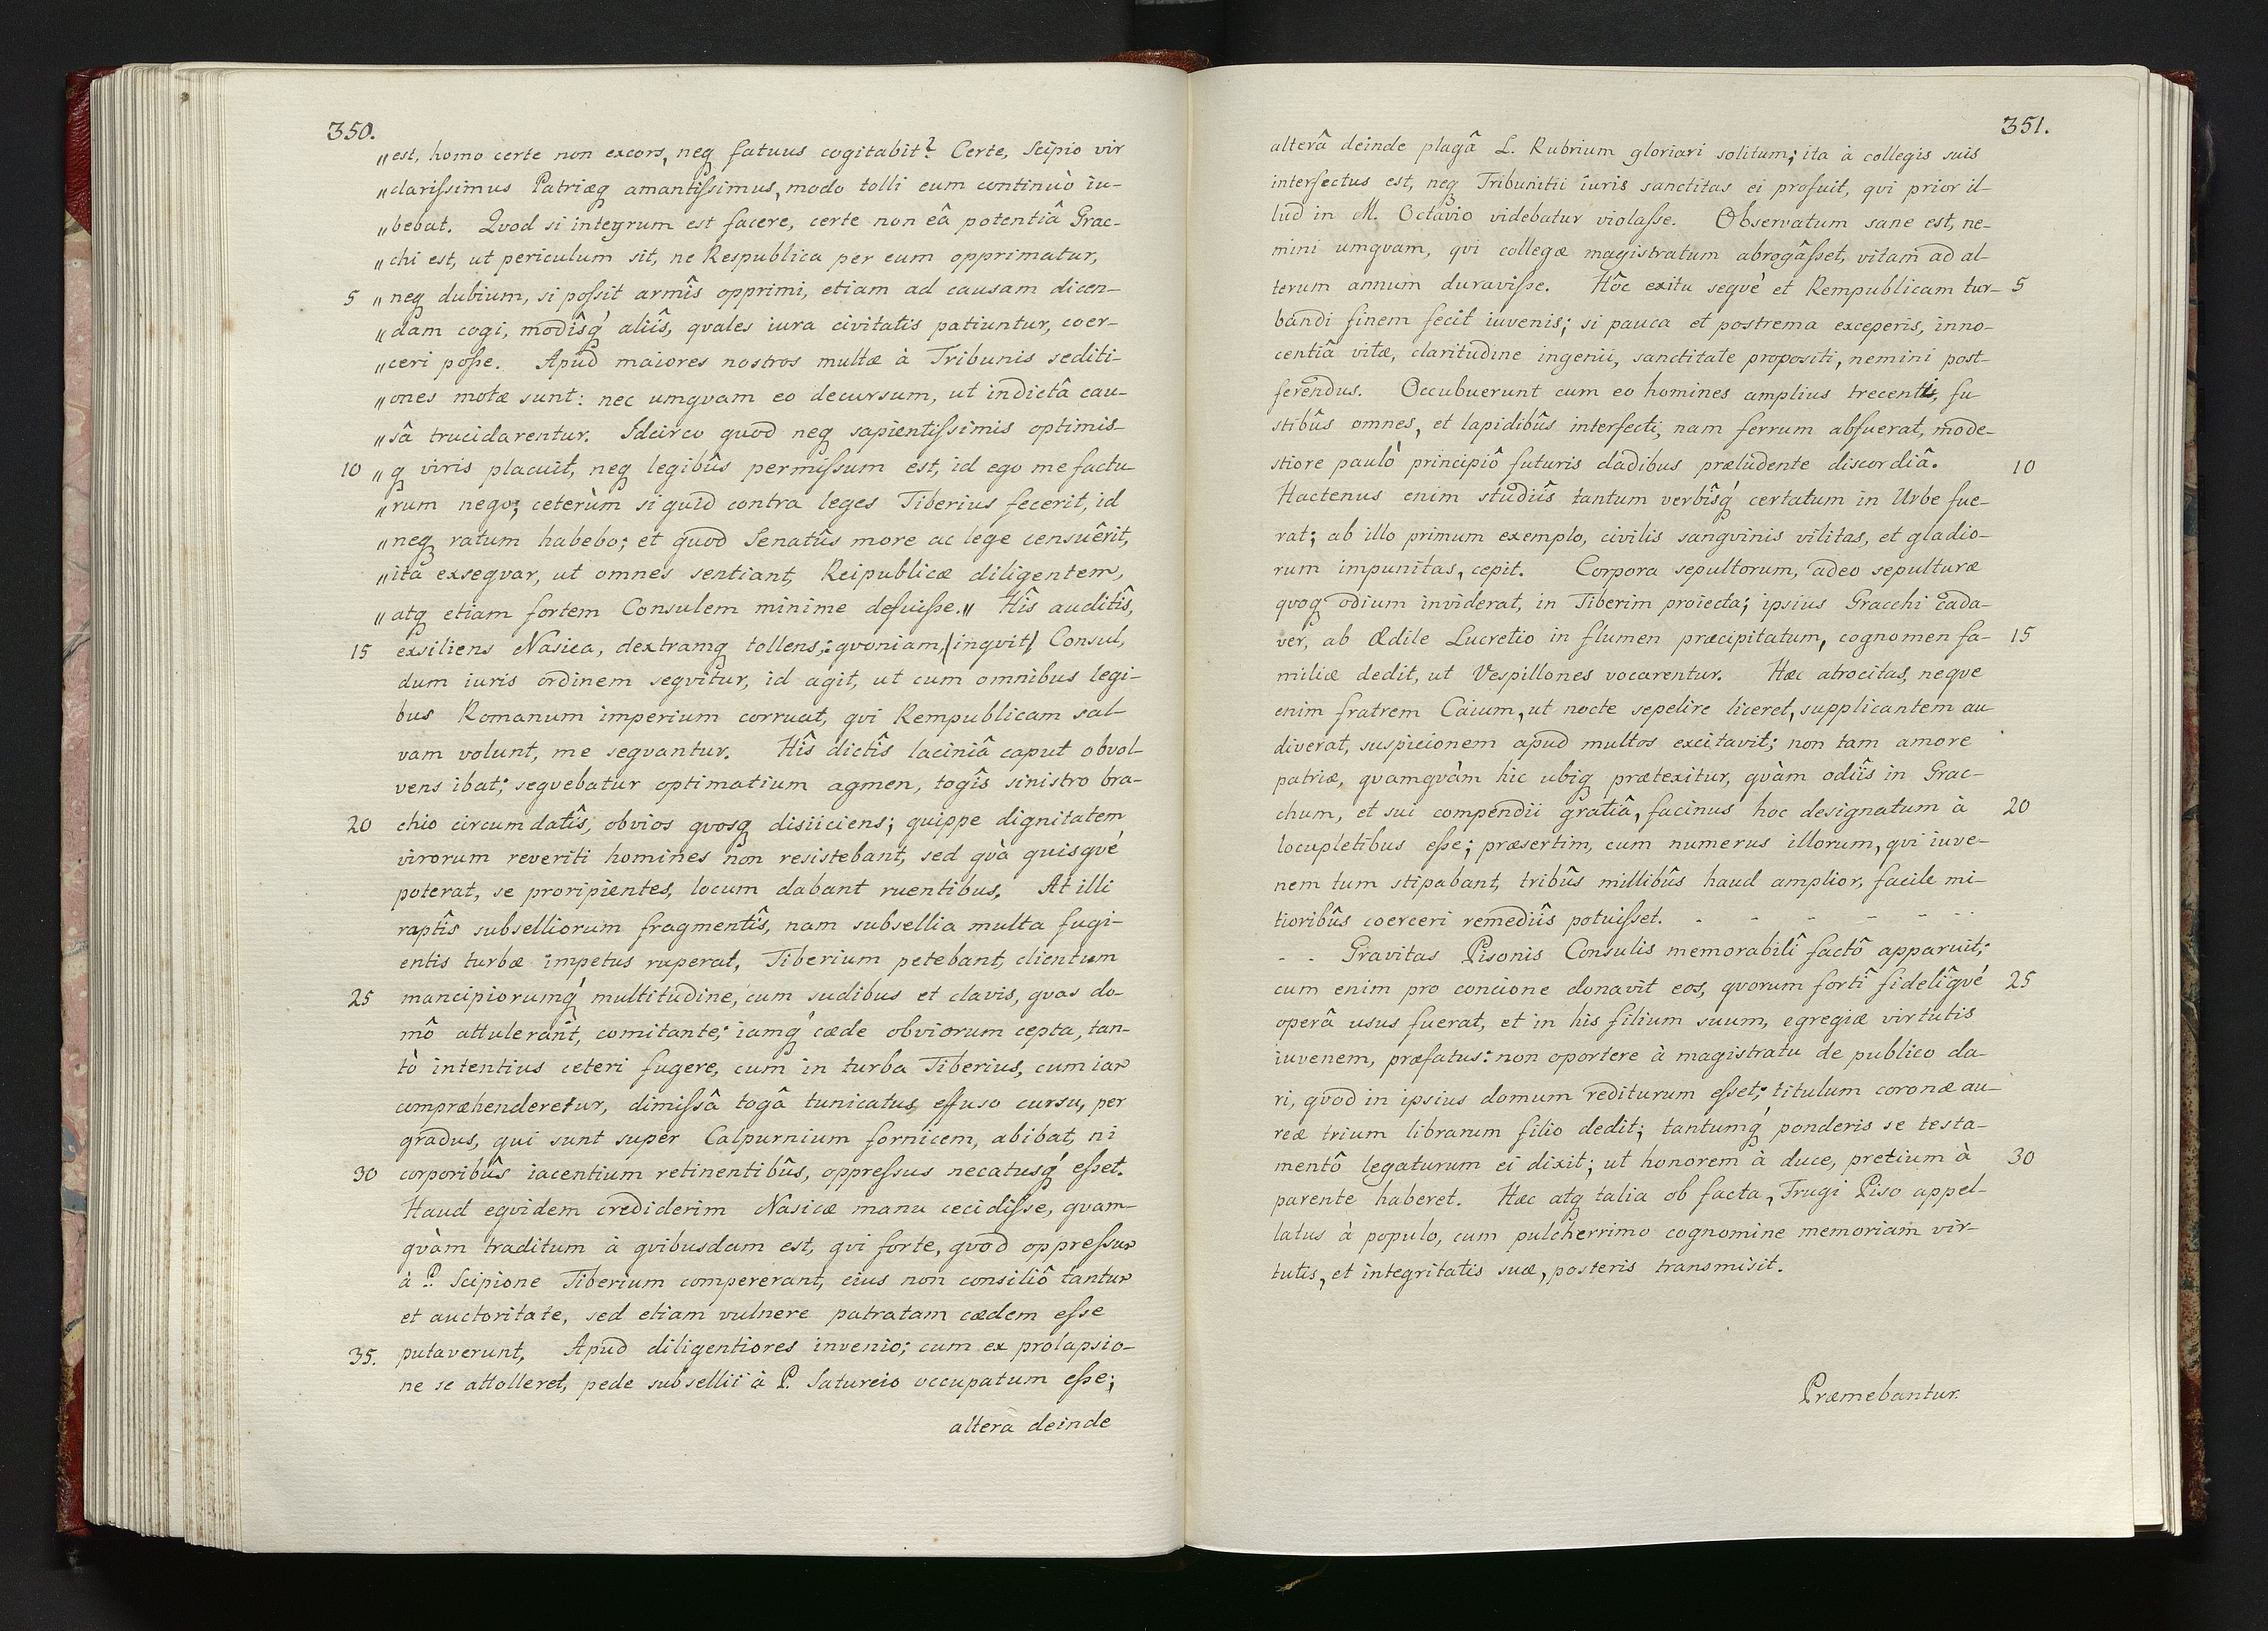 350.
„est, homo certe non excors, neq fatuus cogitabit? Certe, Scipio vir
„clarißimus Patriæq amantißimus, modo tolli eum continuò iu-
„bebat. Qvod si integrum est facere, certe non eâ potentiâ Grac-
„chi est, ut periculum sit, ne Respublica per eum opprimatur,
5 „neq dubium, si poßit armîs opprimi, etiam ad causam dicen-
„dam cogi, modîsq́ aliîs, qvales iura civitatis patiuntur, coer-
„ceri poße. Apud maiores nostros multæ à Tribunis sediti-
„ones motæ sunt: nec umqvam eo decursum, ut indictâ cau-
„sâ trucidarentur. Idcirco quod neq sapientißimis optimis-
10 „q viris placuit, neq legibûs permißum est, id ego me factu
„rum nego; ceterùm si quid contra leges Tiberius fecerit, id
„neq ratum habebo; et quod Senatûs more ac lege censuêrit,
„ita exseqvar, ut omnes sentiant, Reipublicæ diligentem,
„atq etiam fortem Consulem minime defuiße.„ Hîs auditîs,
15 exsiliens Nasica, dextramq tollens,: qvoniam, (inqvit) Consul,
dum iuris ordinem seqvitur, id agit, ut cum omnibus legi-
bus Romanum imperium corruat, qvi Rempublicam sal-
vam volunt, me seqvantur. Hîs dictîs laciniâ caput obvol-
vens ibat; seqvebatur optimatium agmen, togîs sinistro bra-
20 chio circumdatîs, obvios qvosq disiiciens; quippe dignitatem
virorum reveriti homines non resistebant, sed qvà quisqvé
poterat, se proripientes, locum dabant ruentibus. At illi
raptîs subselliorum fragmentîs, nam subsellia multa fugi-
entis turbæ impetus ruperat, Tiberium petebant, clientum
25 mancipiorumq́ multitudine, cum sudibus et clavis, qvas do-
mô attulerant, comitante; iamq́ cæde obviorum cepta, tan-
tò intentius ceteri fugere, cum in turba Tiberius, cum iam
compræhenderetur, dimißâ togâ tunicatus, effuso cursu, per
gradus, qui sunt super Calpurnium fornicem, abibat, ni
30 corporibûs iacentium retinentibûs, oppreßus necatusq́ eßet.
Haud eqvidem crediderim Nasicæ manu cecidiße, qvam-
qvàm traditum à qvibusdam est, qvi forte, qvod oppreßum
à P. Scipione Tiberium compererant, eius non consiliô tantum
et auctoritate, sed etiam vulnere patratam cædem eße
35. putaverunt. Apud diligentiores invenio; cum ex prolapsio-
ne se attolleret, pede subsellii à P. Satureio occupatum eße;
altera deinde
351.
alterâ deinde plagâ L. Rubrium gloriari solitum; ita à collegis suis
interfectus est, neq Tribunitii iuris sanctitas ei profuit, qvi prior il-
lud in M. Octavio videbatur violaße. Observatum sane est, ne-
mini umqvam, qvi collegæ magistratum abrogâßet, vitam ad al-
terum annum duraviße. Hôc exitu seqvè et Rempublicam tur- 5
bandi finem fecit iuvenis; si pauca et postrema exceperis, inno-
centiâ vitæ, claritudine ingenii, sanctitate propositi, nemini post-
ferendus. Occubuerunt cum eo homines amplius trecenti, fu
stibûs omnes, et lapidibûs interfecti, nam ferrum abfuerat, mode-
stiore paulò principiô futuris cladibus præludente discordiâ. 10
Hactenus enim studiîs tantum verbîsq́ certatum in Urbe fue-
rat; ab illo primum exemplo, civilis sangvinis vilitas, et gladio-
rum impunitas, cepit. Corpora sepultorum, adeo sepulturæ
qvoq odium inviderat, in Tiberim proiecta; ipsius Gracchi cada-
ver, ab Ædile Lucretio in flumen præcipitatum, cognomen fa- 15
miliæ dedit, ut Vespillones vocarentur. Hæc atrocitas, neqve
enim fratrem Caium, ut nocte sepelire liceret, supplicantem au
diverat, suspicionem apud multos excitavit; non tam amore
patriæ, qvamqvàm hic ubiq prætexitur, qvàm odiîs in Grac-
chum, et sui compendii gratiâ, facinus hoc designatum à 20
locupletibus eße; præsertim, cum numerus illorum, qvi iuve-
nem tum stipabant, tribûs millibûs haud amplior, facile mi-
tioribûs coerceri remediîs potuißet. - - - - - - -
- - Gravitas Pisonis Consulis memorabilî factô apparuit;
cum enim pro concione donavit eos, qvorum fortî fidelîqvé 25
operâ usus fuerat, et in his filium suum, egregiæ virtutis
iuvenem, præfatus: non oportere à magistratu de publico da-
ri, qvod in ipsius domum rediturum eßet; titulum coronæ au-
reæ trium librarum filio dedit; tantumq́ ponderis se testa-
mentô legaturum ei dixit; ut honorem à duce, pretium à 30
parente haberet. Hæc atq talia ob facta, Frugi Piso appel-
latus à populo, cum pulcherrimo cognomine memoriam vir-
tutis, et integritatis suæ, posteris transmisit.
Præmebantur.